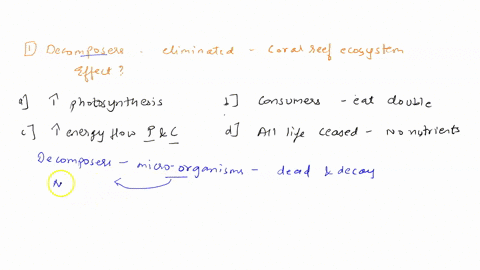 1] Decomposers. eliminated - Coral reef ecosystem
Effect?
a] ↑ photosynthesis b] Consumers - eat double
c] ↑ energy flow P & C d] All life ceased - No nutrients
Decomposers - micro-organisms - dead & decay
N